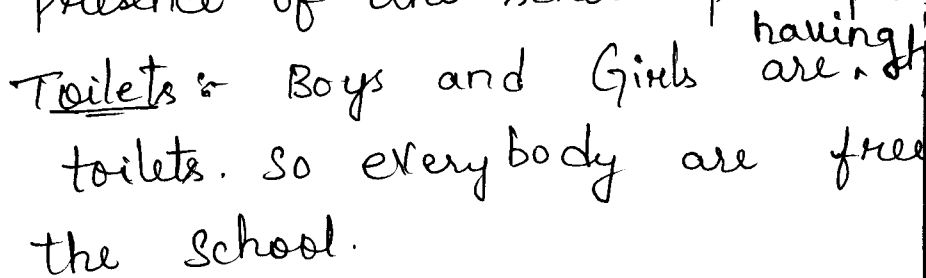 presence of
having
Toilets :- Boys and Girls are
toilets. So everybody are free
the School.